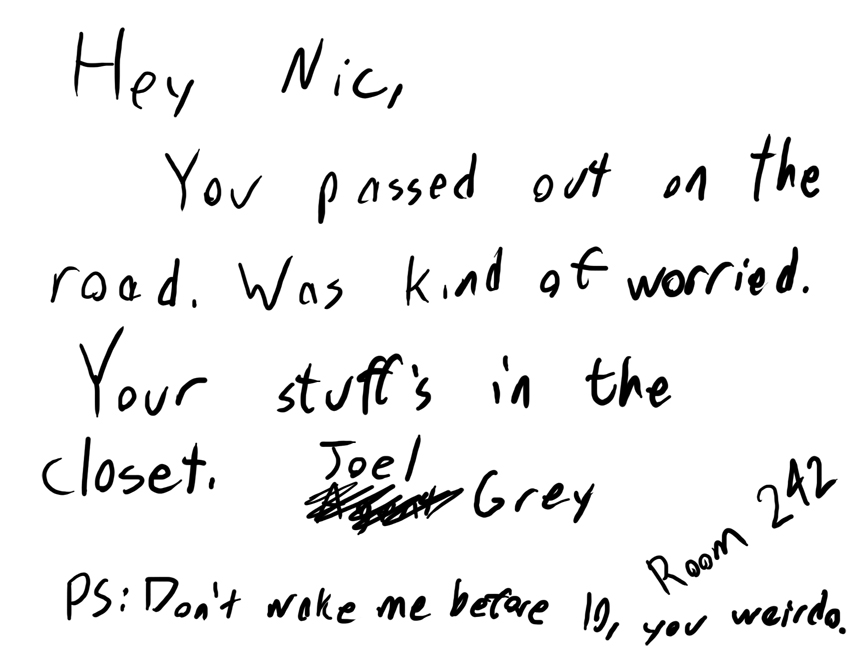 Hey Nic,
You passed out on the
road. Was kind of worried.
Your stuff's in the
closet.
Joel
Grey
Room 242
PS: Don't wake me before 10, you weirdo.